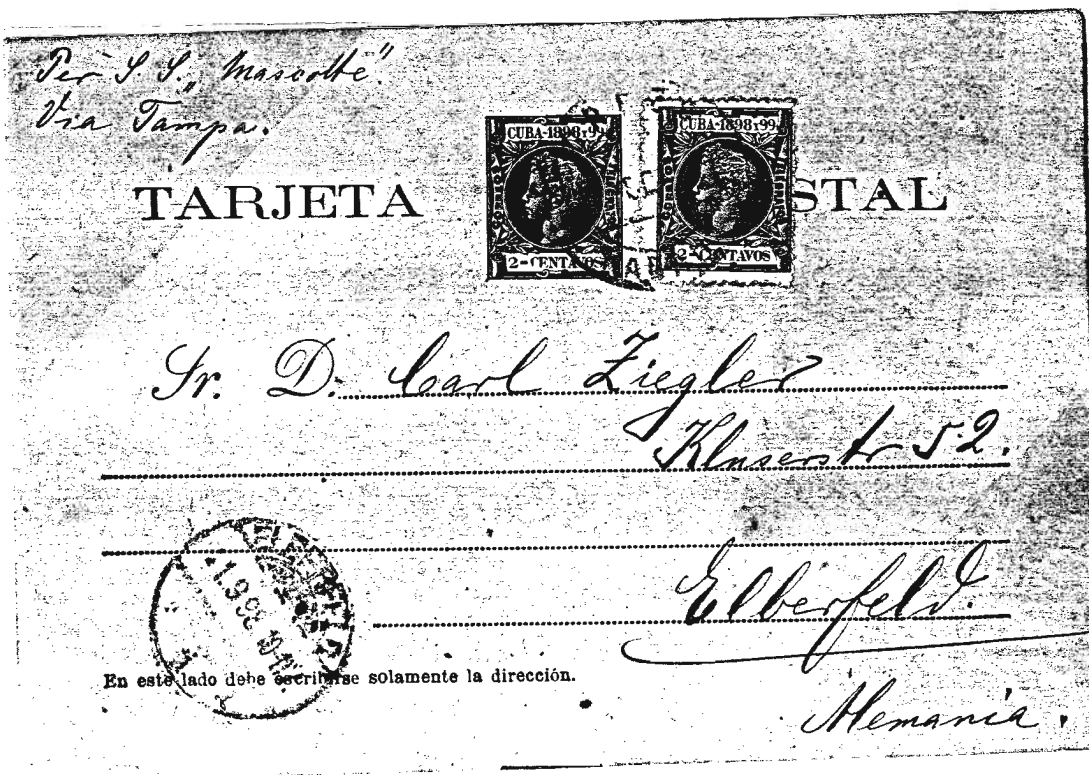 Per S S. „Mascotte"
Via Tampa.
TARJETA STAL
CUBA-1898 y 99
2-CENTAVOS
CUBA-1898 y 99
2-CENTAVOS
Sr. D. Carl Ziegler
Kluserstr 52.
Elberfeld.
En este lado debe escribirse solamente la dirección.
Alemania.